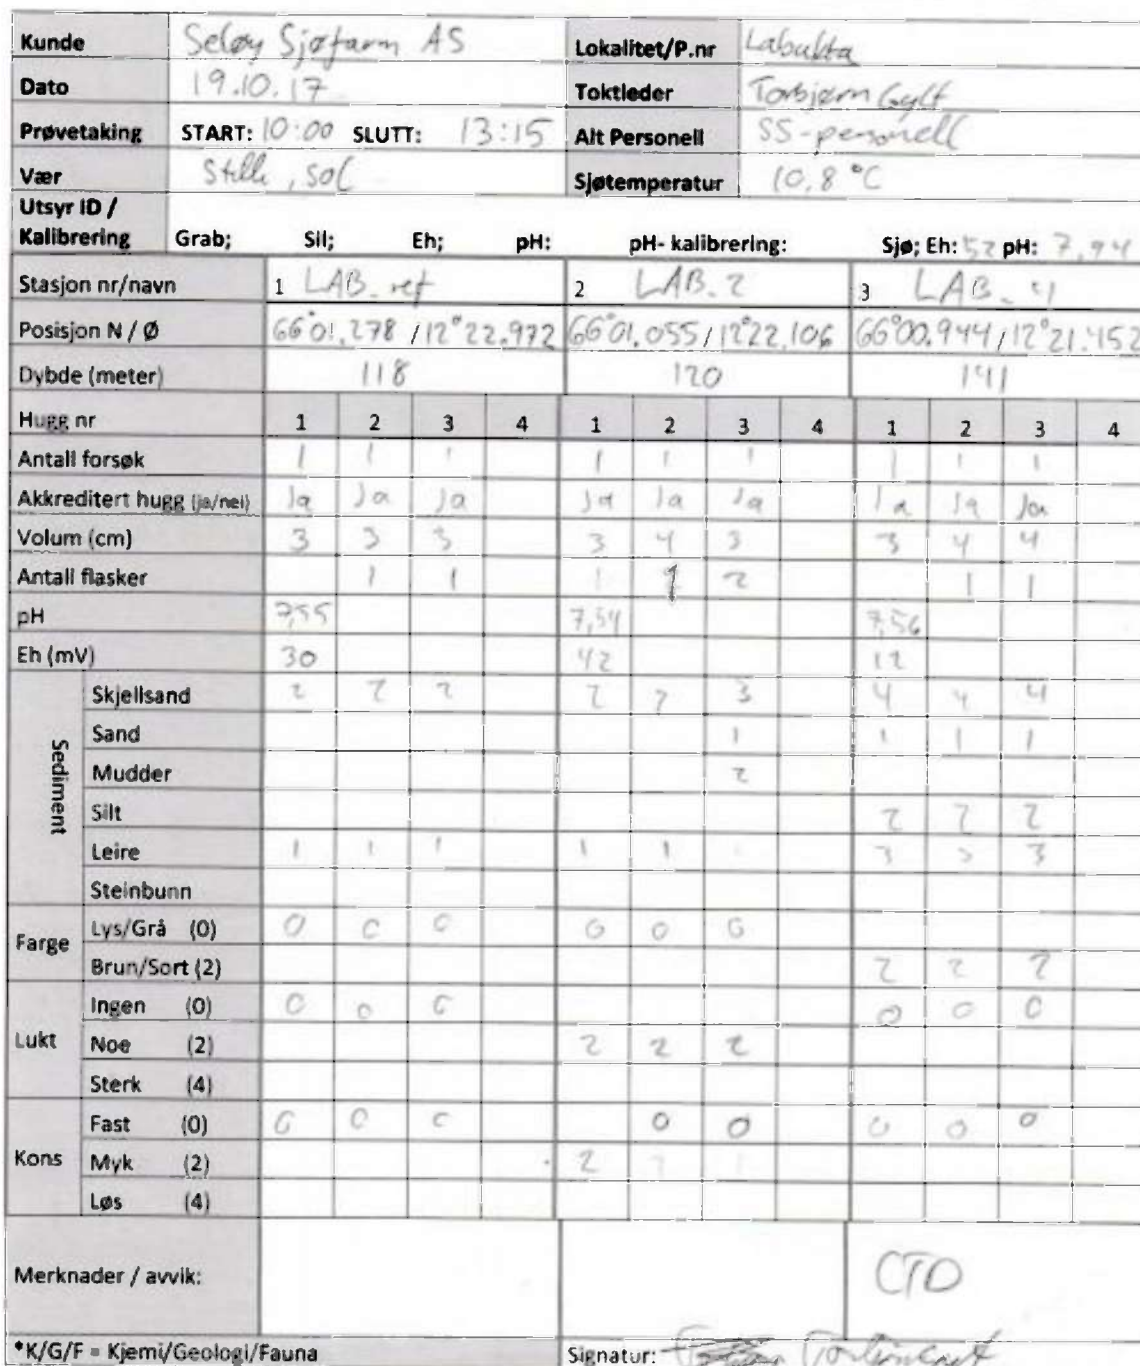 Kunde Seløy Sjøfarm AS Lokalitet/P.nr Labukta
Dato 19.10.17 Toktleder Torbjørn Gylt
Prøvetaking START: 10:00 SLUTT: 13:15 Alt Personell SS-personell
Vær Stille, sol Sjøtemperatur 10,8 °C
Utsyr ID /
Kalibrering Grab; Sil; Eh; pH: pH- kalibrering: Sjø; Eh: 52 pH: 7,94
Stasjon nr/navn 1 LAB_ref 2 LAB_2 3 LAB_4
Posisjon N / Ø 66°01,278 / 12°22,972 66°01,055 / 12°22,106 66°00,944 / 12°21,452
Dybde (meter) 118 120 141
Hugg nr 1 2 3 4 1 2 3 4 1 2 3 4
Antall forsøk 1 1 1 1 1 1 1 1 1
Akkreditert hugg (ja/nei) Ja Ja Ja Ja Ja Ja Ja Ja Ja
Volum (cm) 3 3 3 3 4 3 3 4 4
Antall flasker 1 1 1 1 2 1 1
pH 7,55 7,54 7,56
Eh (mV) 30 42 12
Sediment
Skjellsand 2 2 2 2 2 3 4 4 4
Sand 1 1 1 1
Mudder 2
Silt 2 2 2
Leire 1 1 1 1 1 3 3 3
Steinbunn
Farge
Lys/Grå (0) 0 0 0 0 0 0
Brun/Sort (2) 2 2 2
Lukt
Ingen (0) 0 0 0 0 0 0
Noe (2) 2 2 2
Sterk (4)
Kons
Fast (0) 0 0 0 0 0 0 0 0
Myk (2) 2
Løs (4)
Merknader / avvik: CTD
*K/G/F = Kjemi/Geologi/Fauna Signatur: